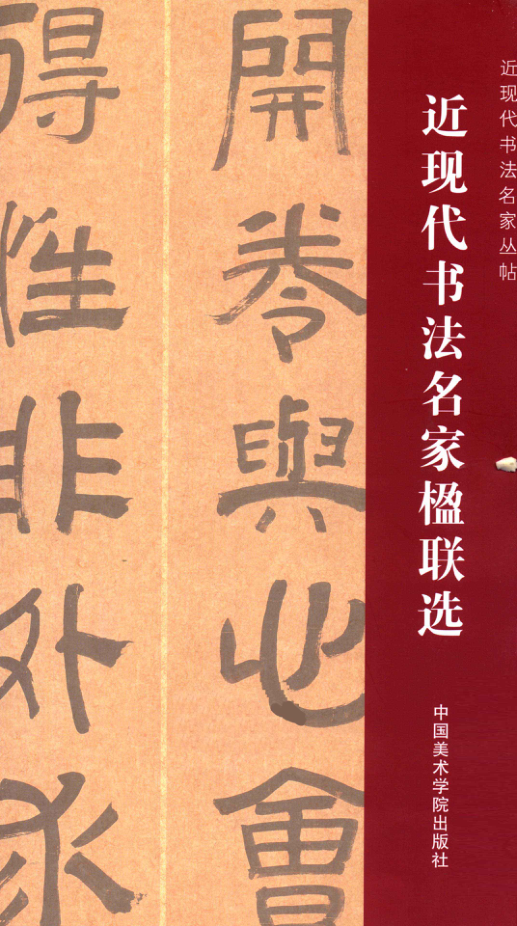 近现代书法名家丛帖
近现代书法名家楹联选
中国美术学院出版社
開卷與心會
得性非外求